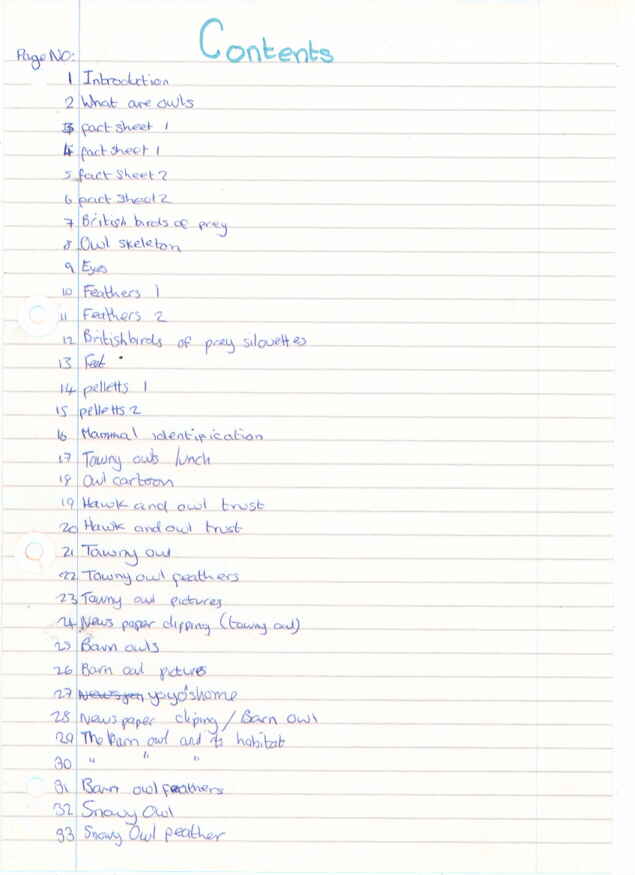 Contents
Page No:
1 Introduction
2 What are owls
3 fact sheet 1
4 fact sheet 1
5 fact sheet 2
6 fact sheet 2
7 British birds of prey
8 Owl skeleton
9 Eyes
10 Feathers 1
11 Feathers 2
12 British birds of prey silouettes
13 Feet
14 pelletts 1
15 pelletts 2
16 Mammal identification
17 Tawny owls lunch
18 Owl cartoon
19 Hawk and owl trust
20 Hawk and owl trust
21 Tawny owl
22 Tawny owl feathers
23 Tawny owl pictures
24 News paper clipping (tawny owl)
25 Barn owls
26 Barn owl pictures
27 yoyo's home
28 News paper cliping / Barn owl
29 The Barn owl and its habitat
30 " " "
31 Barn owl feathers
32 Snowy Owl
33 Snowy Owl feather